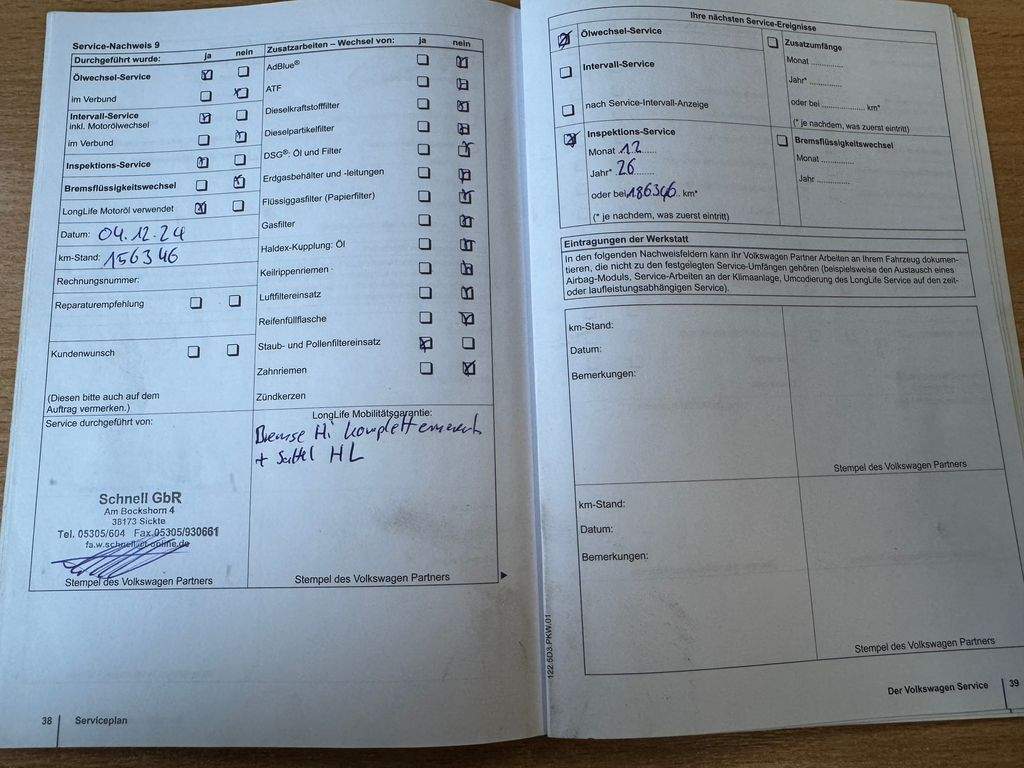 Service-Nachweis 9
Durchgeführt wurde: ja nein
Ölwechsel-Service
im Verbund
Intervall-Service
inkl. Motorölwechsel
im Verbund
Inspektions-Service
Bremsflüssigkeitswechsel
LongLife Motoröl verwendet
Datum: 04.12.24
km-Stand: 156346
Rechnungsnummer:
Reparaturempfehlung
Kundenwunsch
(Diesen bitte auch auf dem
Auftrag vermerken.)
Zusatzarbeiten – Wechsel von: ja nein
AdBlue®
ATF
Dieselkraftstofffilter
Dieselpartikelfilter
DSG®: Öl und Filter
Erdgasbehälter und -leitungen
Flüssiggasfilter (Papierfilter)
Gasfilter
Haldex-Kupplung: Öl
Keilrippenriemen
Luftfiltereinsatz
Reifenfüllflasche
Staub- und Pollenfiltereinsatz
Zahnriemen
Zündkerzen
Service durchgeführt von:
Schnell GbR
Am Bockshorn 4
38173 Sickte
Tel. 05305/604 Fax 05305/930661
fa.w.schnell@t-online.de
Stempel des Volkswagen Partners
LongLife Mobilitätsgarantie:
Bremse Hi komplett erneuert
+ Sattel HL
Stempel des Volkswagen Partners
38 Serviceplan
Ihre nächsten Service-Ereignisse
Ölwechsel-Service
Intervall-Service
nach Service-Intervall-Anzeige
Inspektions-Service
Monat 12
Jahr* 26
oder bei 186346 km*
(* je nachdem, was zuerst eintritt)
Zusatzumfänge
Monat
Jahr*
oder bei km*
(* je nachdem, was zuerst eintritt)
Bremsflüssigkeitswechsel
Monat
Jahr
Eintragungen der Werkstatt
In den folgenden Nachweisfeldern kann Ihr Volkswagen Partner Arbeiten an Ihrem Fahrzeug dokumen-
tieren, die nicht zu den festgelegten Service-Umfängen gehören (beispielsweise den Austausch eines
Airbag-Moduls, Service-Arbeiten an der Klimaanlage, Umcodierung des LongLife Service auf den zeit-
oder laufleistungsabhängigen Service).
km-Stand:
Datum:
Bemerkungen:
Stempel des Volkswagen Partners
km-Stand:
Datum:
Bemerkungen:
Stempel des Volkswagen Partners
122.5D3.PKW.01
Der Volkswagen Service 39